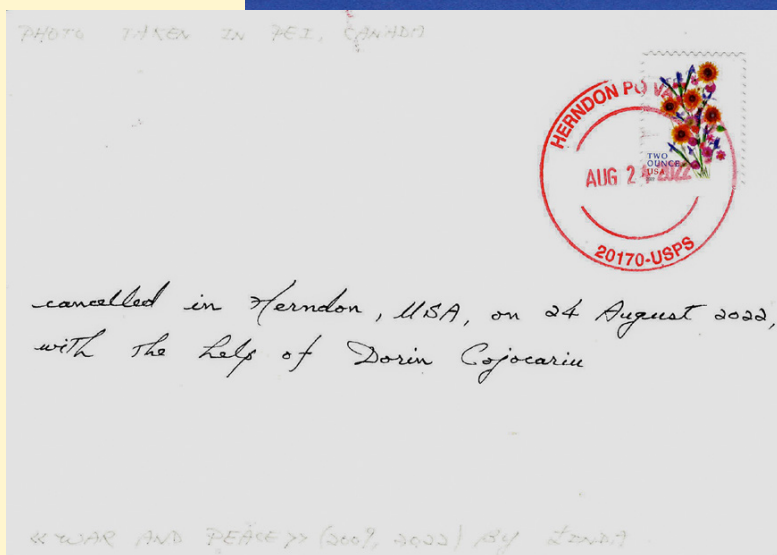 PHOTO TAKEN IN PEI, CANADA
HERNDON PO VA
TWO
OUNCE
USA
AUG 24 2022
20170-USPS
cancelled in Herndon, USA, on 24 August 2022,
with the help of Dorin Cojocariu
«WAR AND PEACE» (2009, 2022) BY LINDA